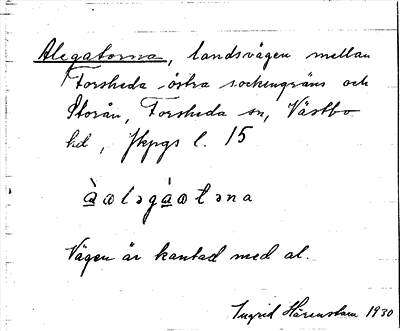 Alegatorna, landsvägen mellan
Forsheda östra sockengräns och
Storån, Forsheda sn, Västbo
hd, Jkpgs l. 15
à̲ɷləgá̲ɷtəna
Vägen är kantad med al.
Ingrid Härenstam 1930